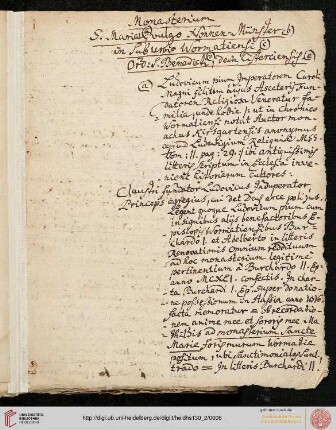 Monasterium
S. Mariæ vulgo Nonnen-Münster (b)
in Suburbio Wormatiensi (c)
Ord: S. Benedicti (d) dein Cisterciensis (e)
(a) Ludovicum pium Imperatorem Caroli
Magni filium hujus Asceterij Fun-
datorem Religiosa veneratur fa-
milia, unde hodie; ut in Chronico
Wormatiensi notavit Auctor mon-
achus Kirsgartensis anonymus
apud Ludewigium Reliquiæ MSS.
tom: II. pag: 29. sibi antiquissimis
litteris scriptum in Ecclesia inve-
nient historiarum cultores:
Claustri fundator Ludovicus Induperator,
Princeps egregius, cui det Deus arce polijus.
Legent quoque Ludovicum pium cum
insignibus alijs benefactoribus E-
piscopis Wormatiensibus Bur-
chardo I. et Adelberto in litteris
Renovationis omnium reddituum
ad hoc monasterium legitime
pertinentium a Burchardo II. Ep.
anno MCXLI. confectis. In char-
ta Burchardi I. Ep. super donatio-
ne possessionum in Hassia anno 1016
facta memoratur ob recordatio-
nem animæ meæ et sororis meæ Ma-
thildis ad monasterium Sanctæ
Mariæ foris murum Wormatiæ
positum, ubi sanctimoniales
In litteris Burchardi II.
UNIVERSITÄTS-
BIBLIOTHEK
HEIDELBERG
http://digi.ub.uni-heidelberg.de/diglit/heidhs130_2/0006